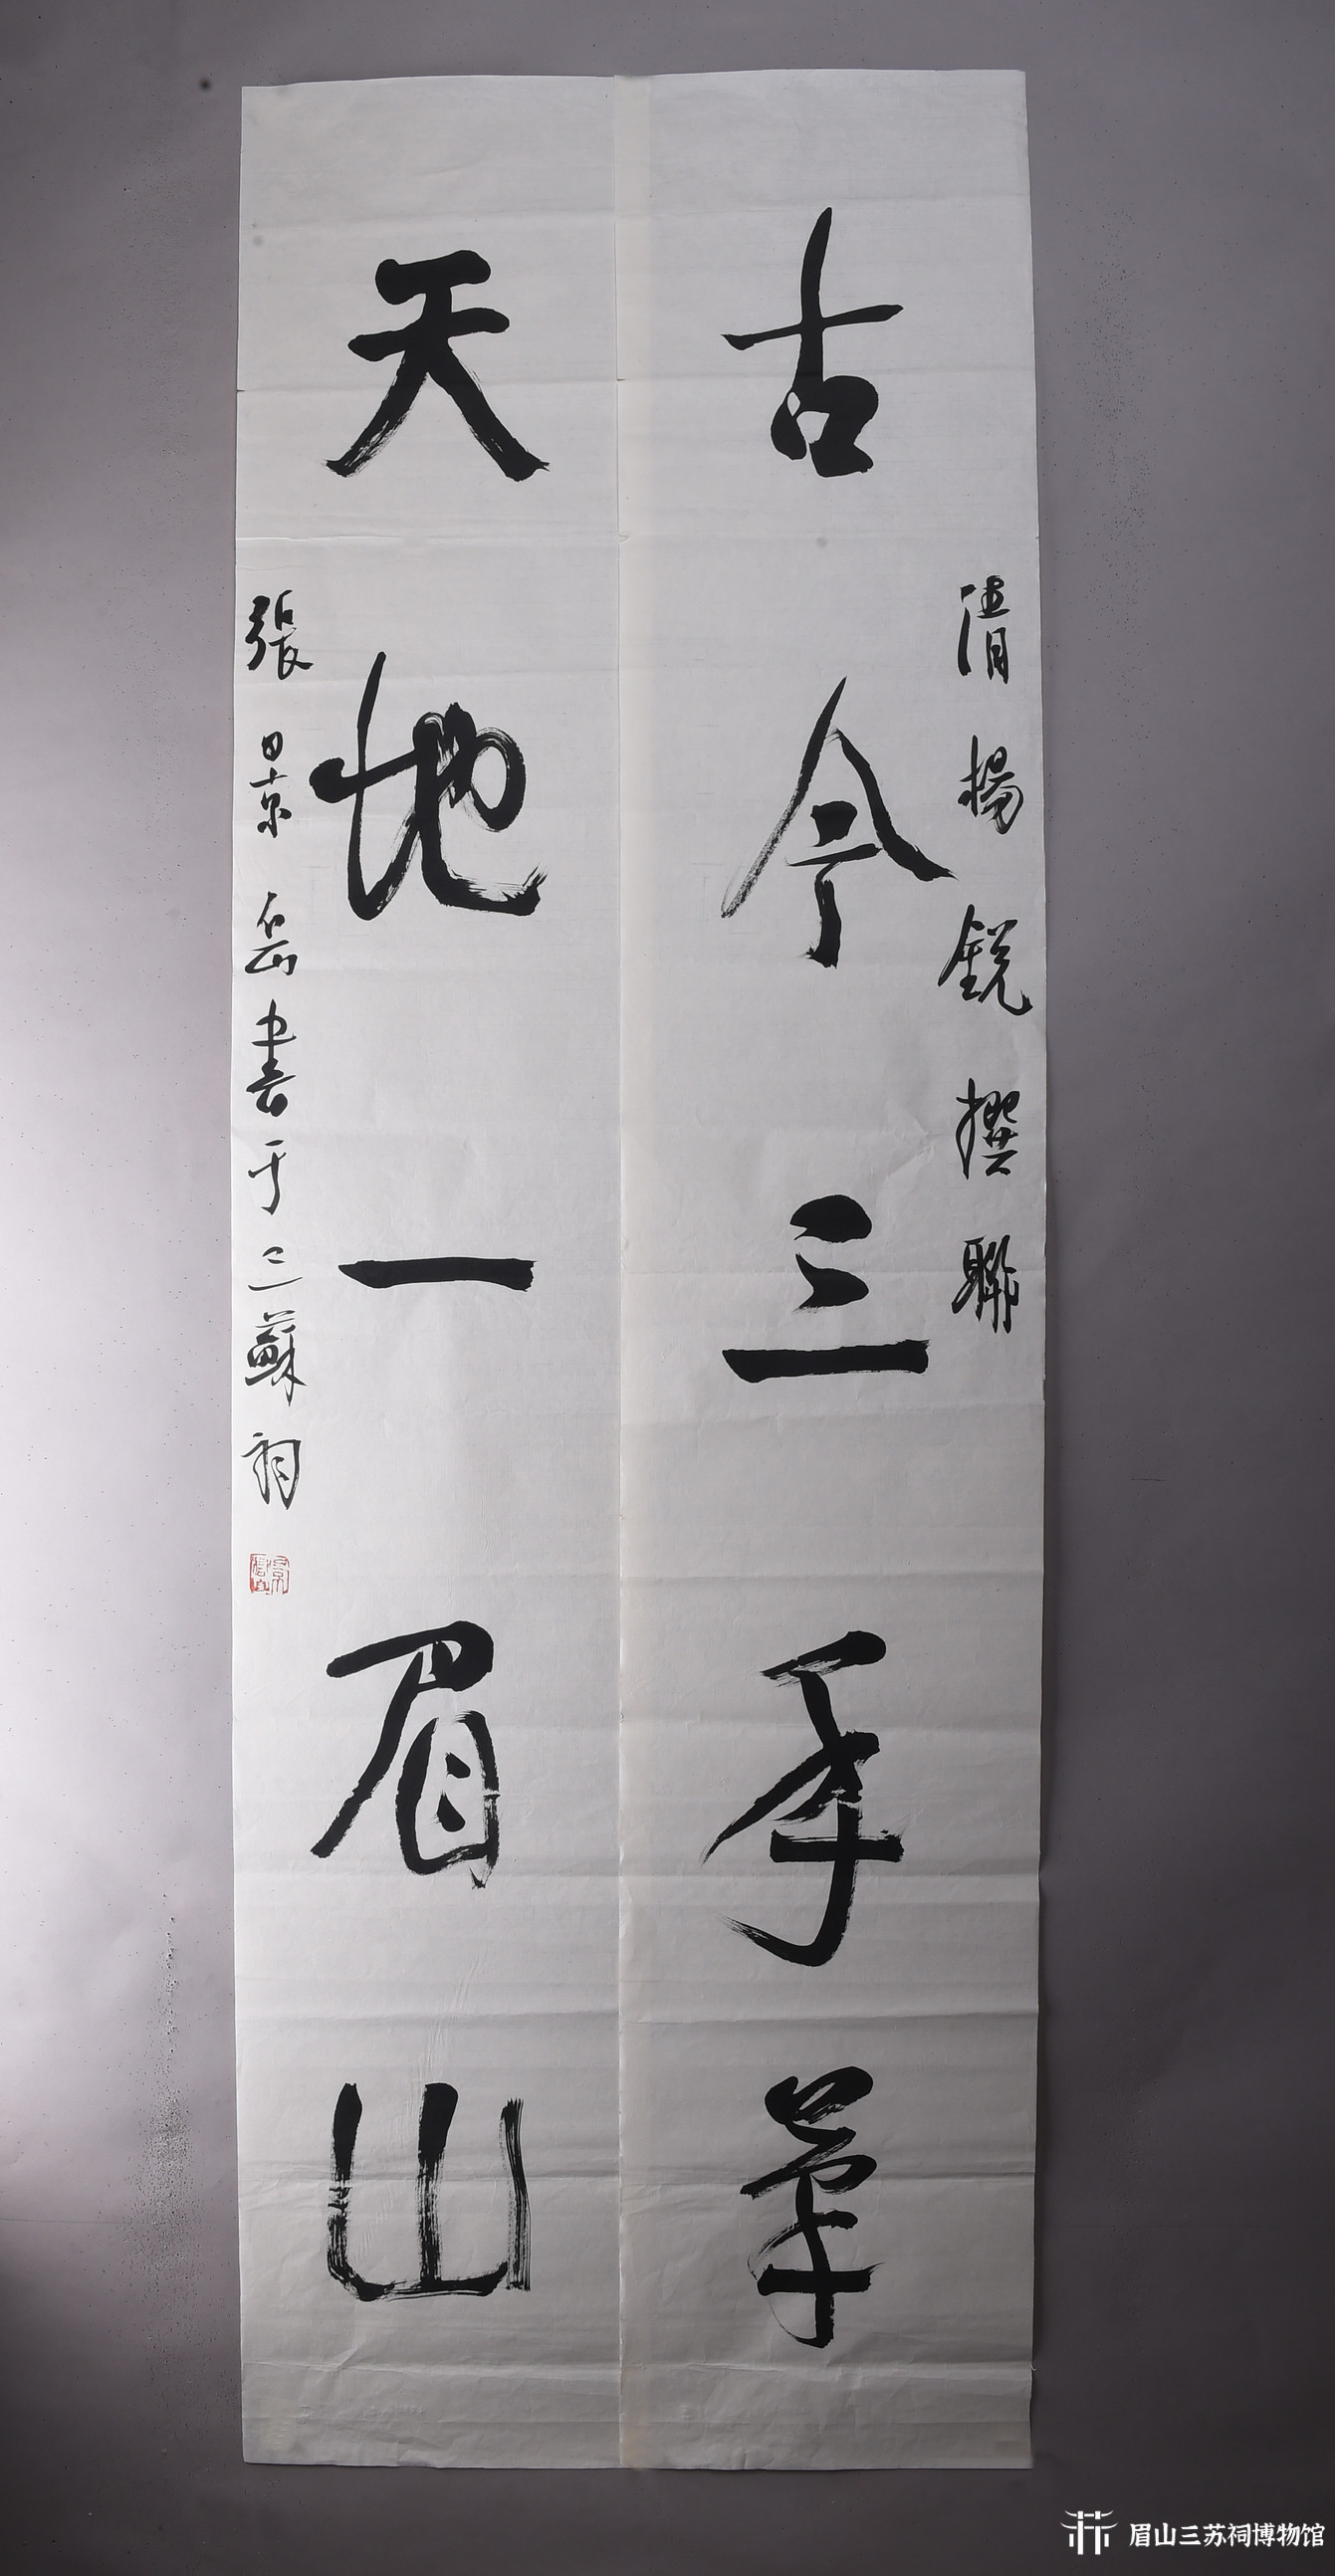 清楊銳撰聯
古今三手筆
天地一眉山
張景岳書于三蘇祠
眉山三苏祠博物馆